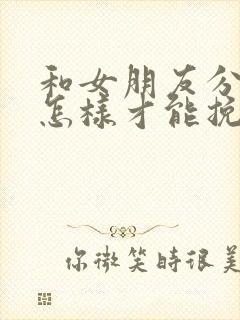 和女朋友分
怎樣才能挽
你微笑時很美